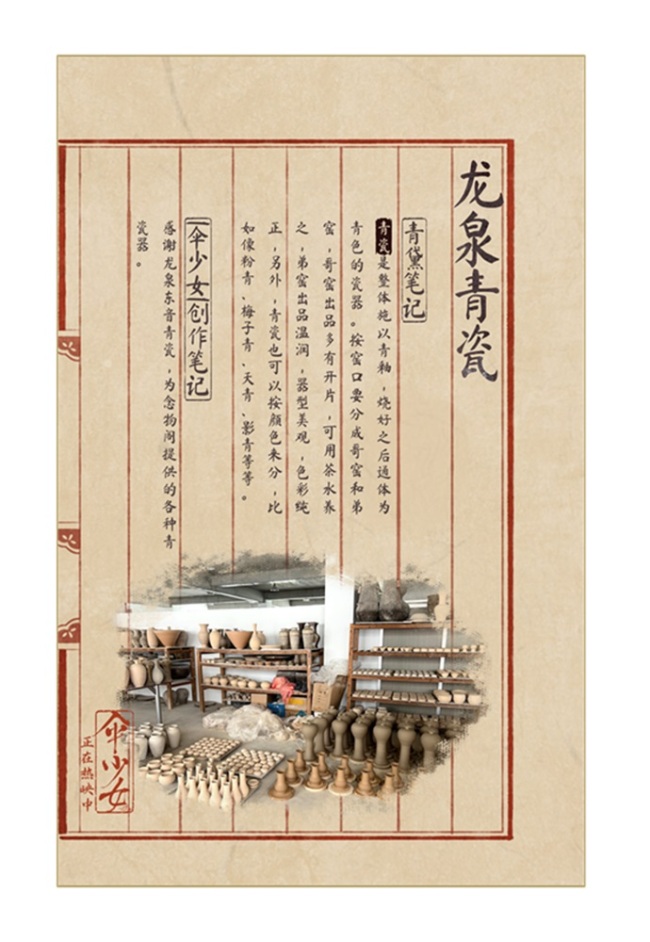 龙泉青瓷
青黛笔记
青瓷是整体施以青釉，烧好之后通体为
青色的瓷器。按窑口要分成哥窑和弟
窑，哥窑出品多有开片，可用茶水养
之，弟窑出品温润，器型美观，色彩纯
正，另外，青瓷也可以按颜色来分，比
如像粉青、梅子青、天青、影青等等。
伞少女创作笔记
感谢龙泉东音青瓷，为念物阁提供的各种青
瓷器。
伞少女
正在热映中